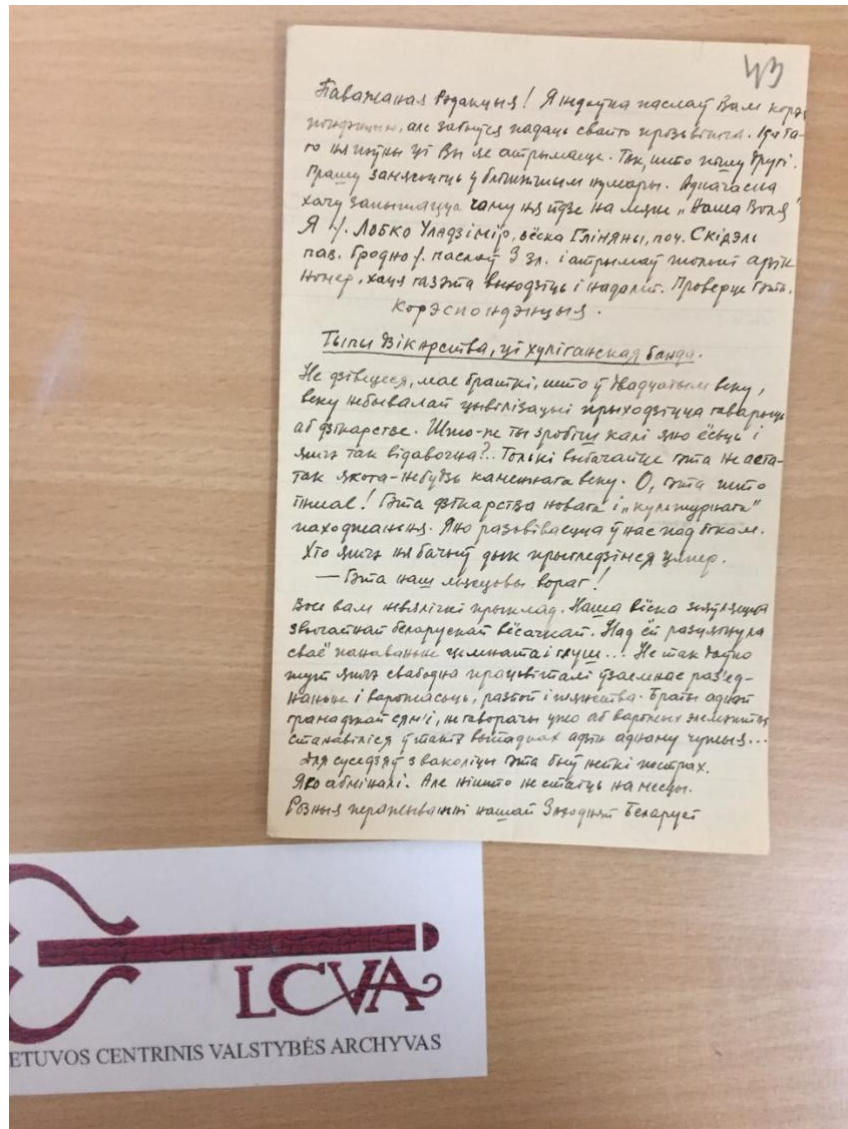 43
Паважаная Рэдакцыя! Я нядаўна паслаў Вам корэс
пондэнцыю, але забыўся падаць свайго прозьвішча. Для та-
го ня пэўны ці Вы яе атрымаеце. Так, што пішу другі.
Прашу замясьціць у бліжэйшым нумары. Адначасна
хачу запытацца чаму ня йдзе на мяне „Наша Воля"
Я /. Лобко Уладзімір, вёска Гліняны, поч. Скідэль
пав. Гродно /. паслаў 3 зл. і атрымаў толькі адзін
номер, хаця газэта выходзіць і надалей. Проверце гэта.
Корэспондэнцыя.
Тыпы дзікарства, ці хуліганская банда.
Не дзівецеся, мае браткі, што ў двадцатым веку,
веку небывалай цывілізацыі прыходзіцца гаварыць
аб дзікарстве. Што-ж ты зробіш калі яно ёсьць і
яшчэ так відавочна?.. Толькі выбачайце гэта не аста-
так якога-небудзь каменнага веку. О, гэта што
іншае! Гэта дзікарства новага і „культурнага"
паходжаньня. Яно разьвіваецца ў нас пад бокам.
Хто яшчэ ня бачыў дык прыгледзімся цяпер.
— Гэта наш мясцовы вораг!
Вось вам невялічкі прыклад. Наша вёска зьяўляецца
звычайнай беларускай вёсачкай. Над ёй разцягнула
сваё панаваньне цемната і глуш... Не так даўно
тут яшчэ свабодна працьвіталі ўзаемнае раз'ед-
наньне і варожасьць, разпой і пьянства. Браты аднэй
грамадзкай сям'і, не гаворачы ужо аб варожых
станавіліся ў такіх выпадках адзін аднаму чужыя...
Для суседзяў з ваколіцы гэта быў нейкі пострах.
Яго абміналі. Але нішто не стаіць на месцы.
Розныя перажываньні нашай Заходняй Беларусі
LCVA
ETUVOS CENTRINIS VALSTYBĖS ARCHYVAS